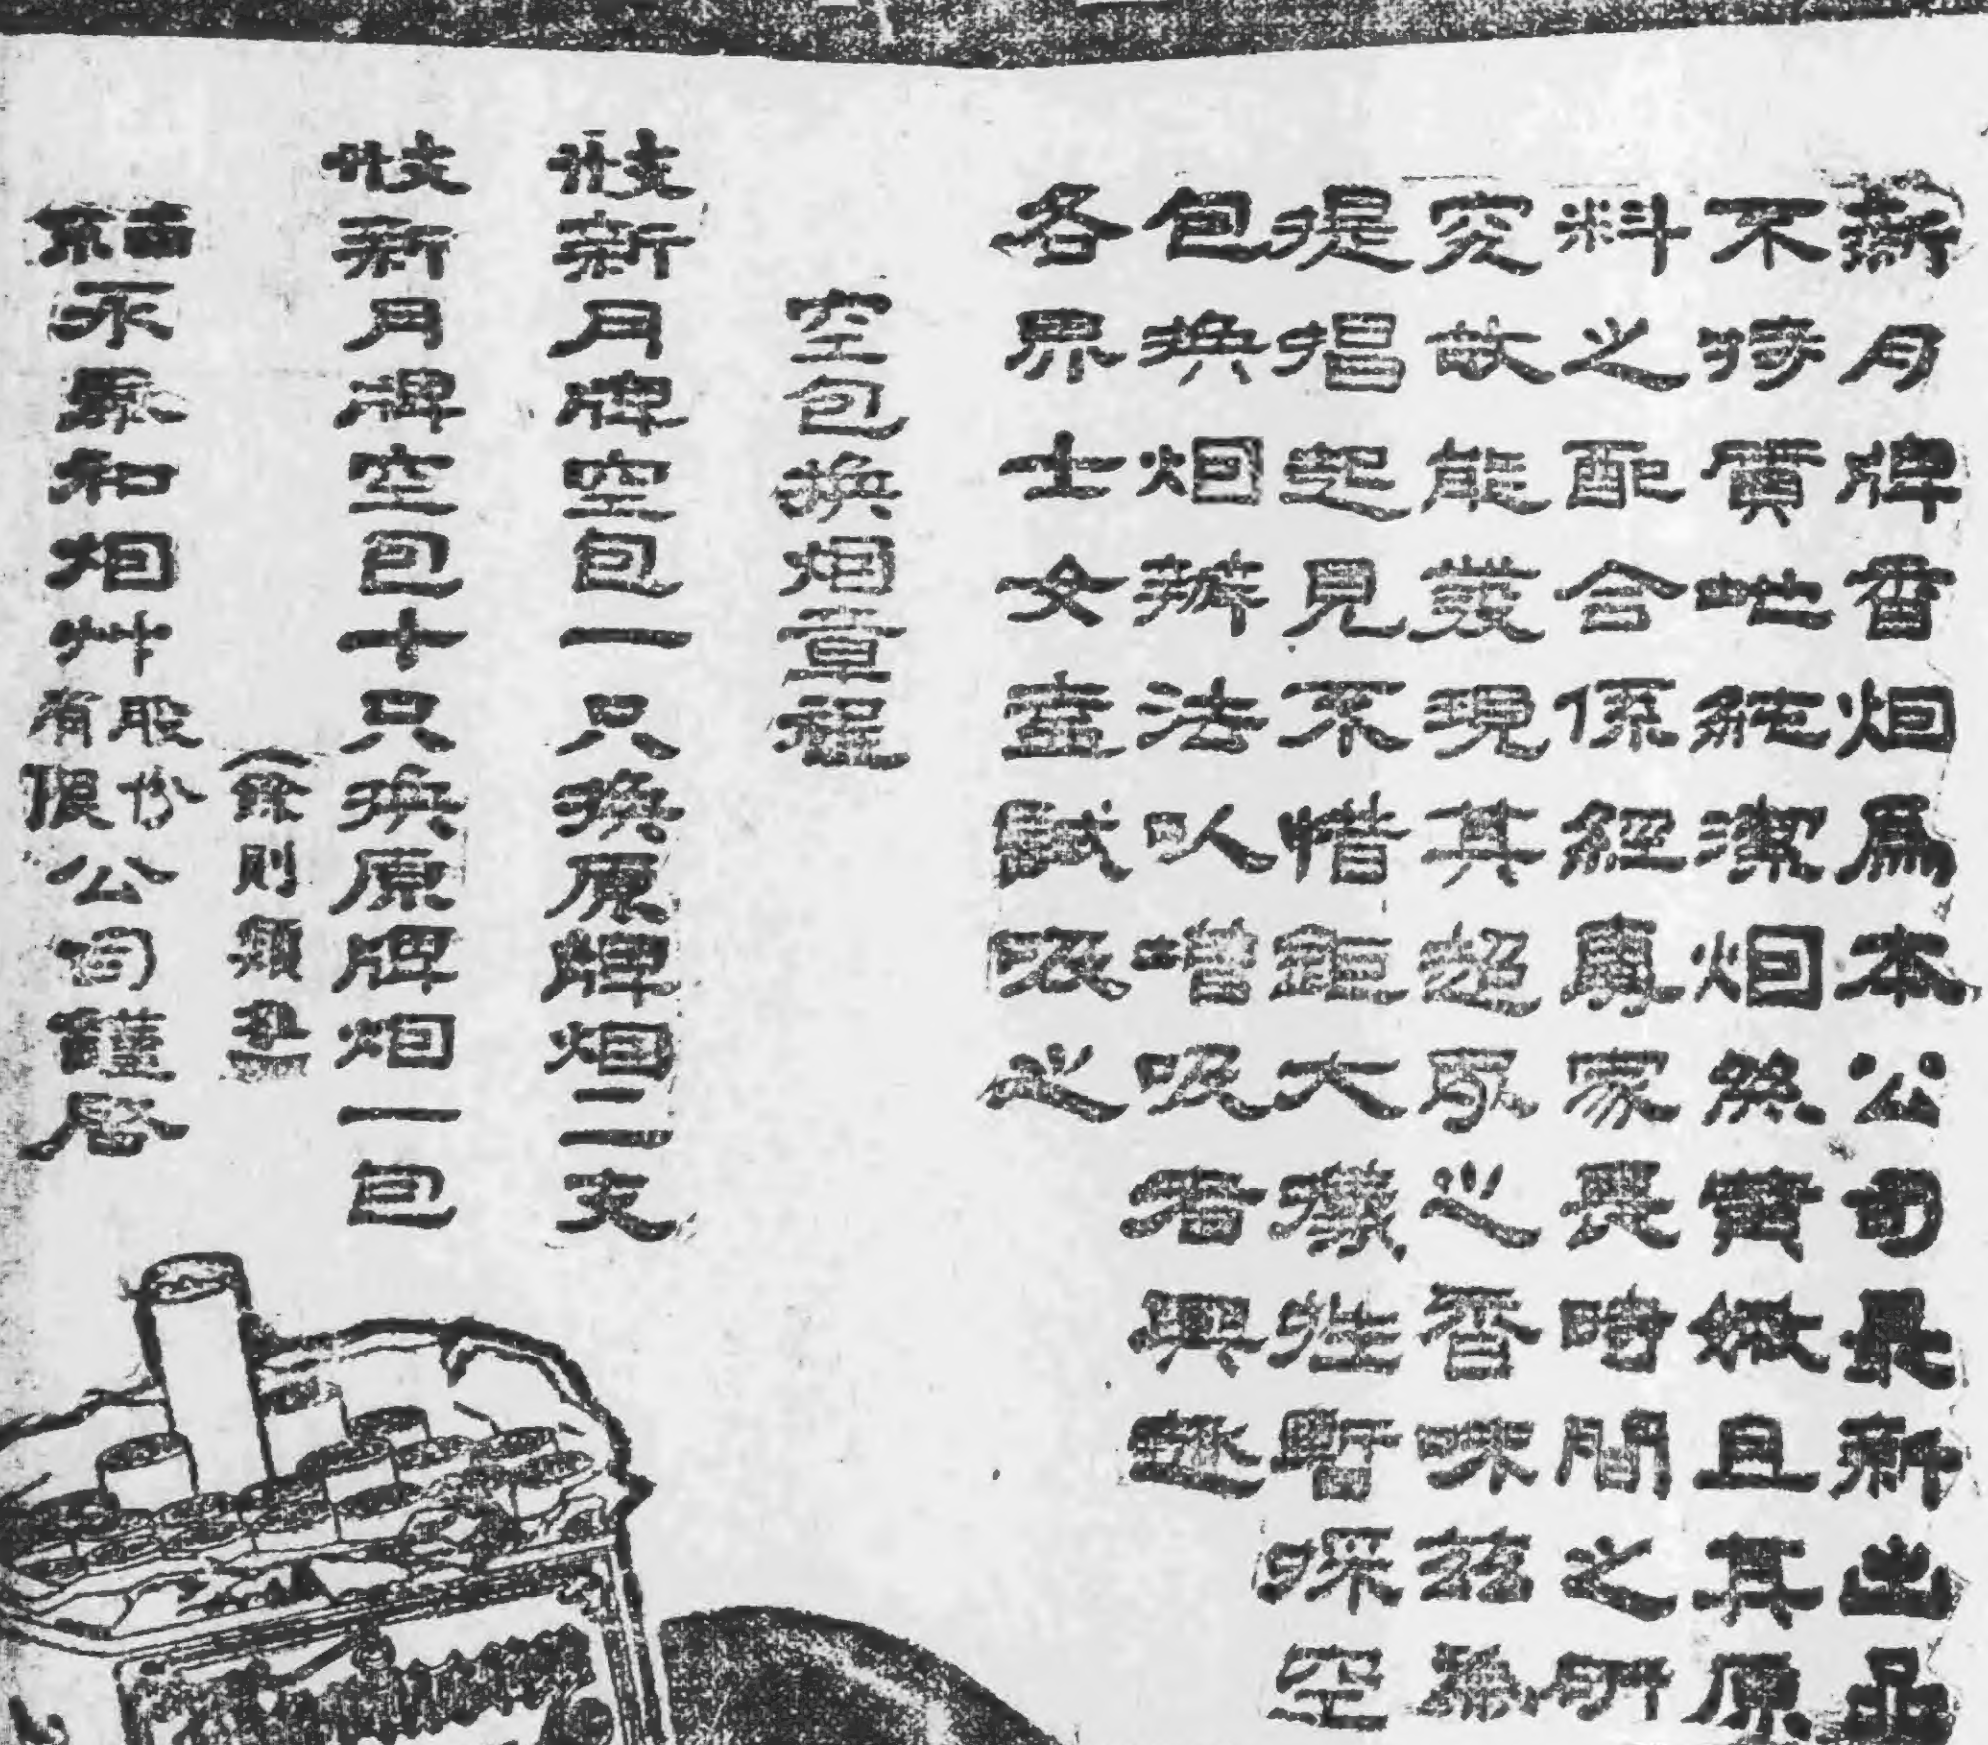 新月牌香烟為本公司最新出品
不特質地純潔烟絲黄嫩且其原
料之配合係經專家畏時間之研
究故能發現其超乎之香味茲為
提倡起見不惜鉅大犧牲暫採空
包換烟辦法以嗜吸者興趣
各界士女盍試吸之
空包換烟章程
收新月牌空包一只換原牌烟二支
收新月牌空包十只換原牌烟一包
(餘則類推)
永泰和烟艸股份有限公司謹啓